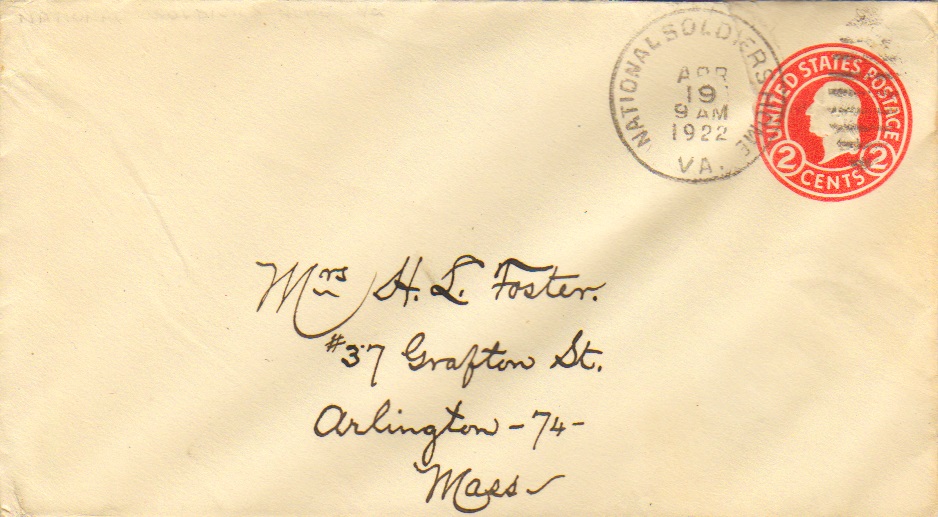 NATIONAL SOLDIERS HOME
APR
19
9 AM
1922
VA.
UNITED STATES POSTAGE
2 CENTS 2
Mrs H. L. Foster.
#37 Grafton St.
Arlington - 74 -
Mass